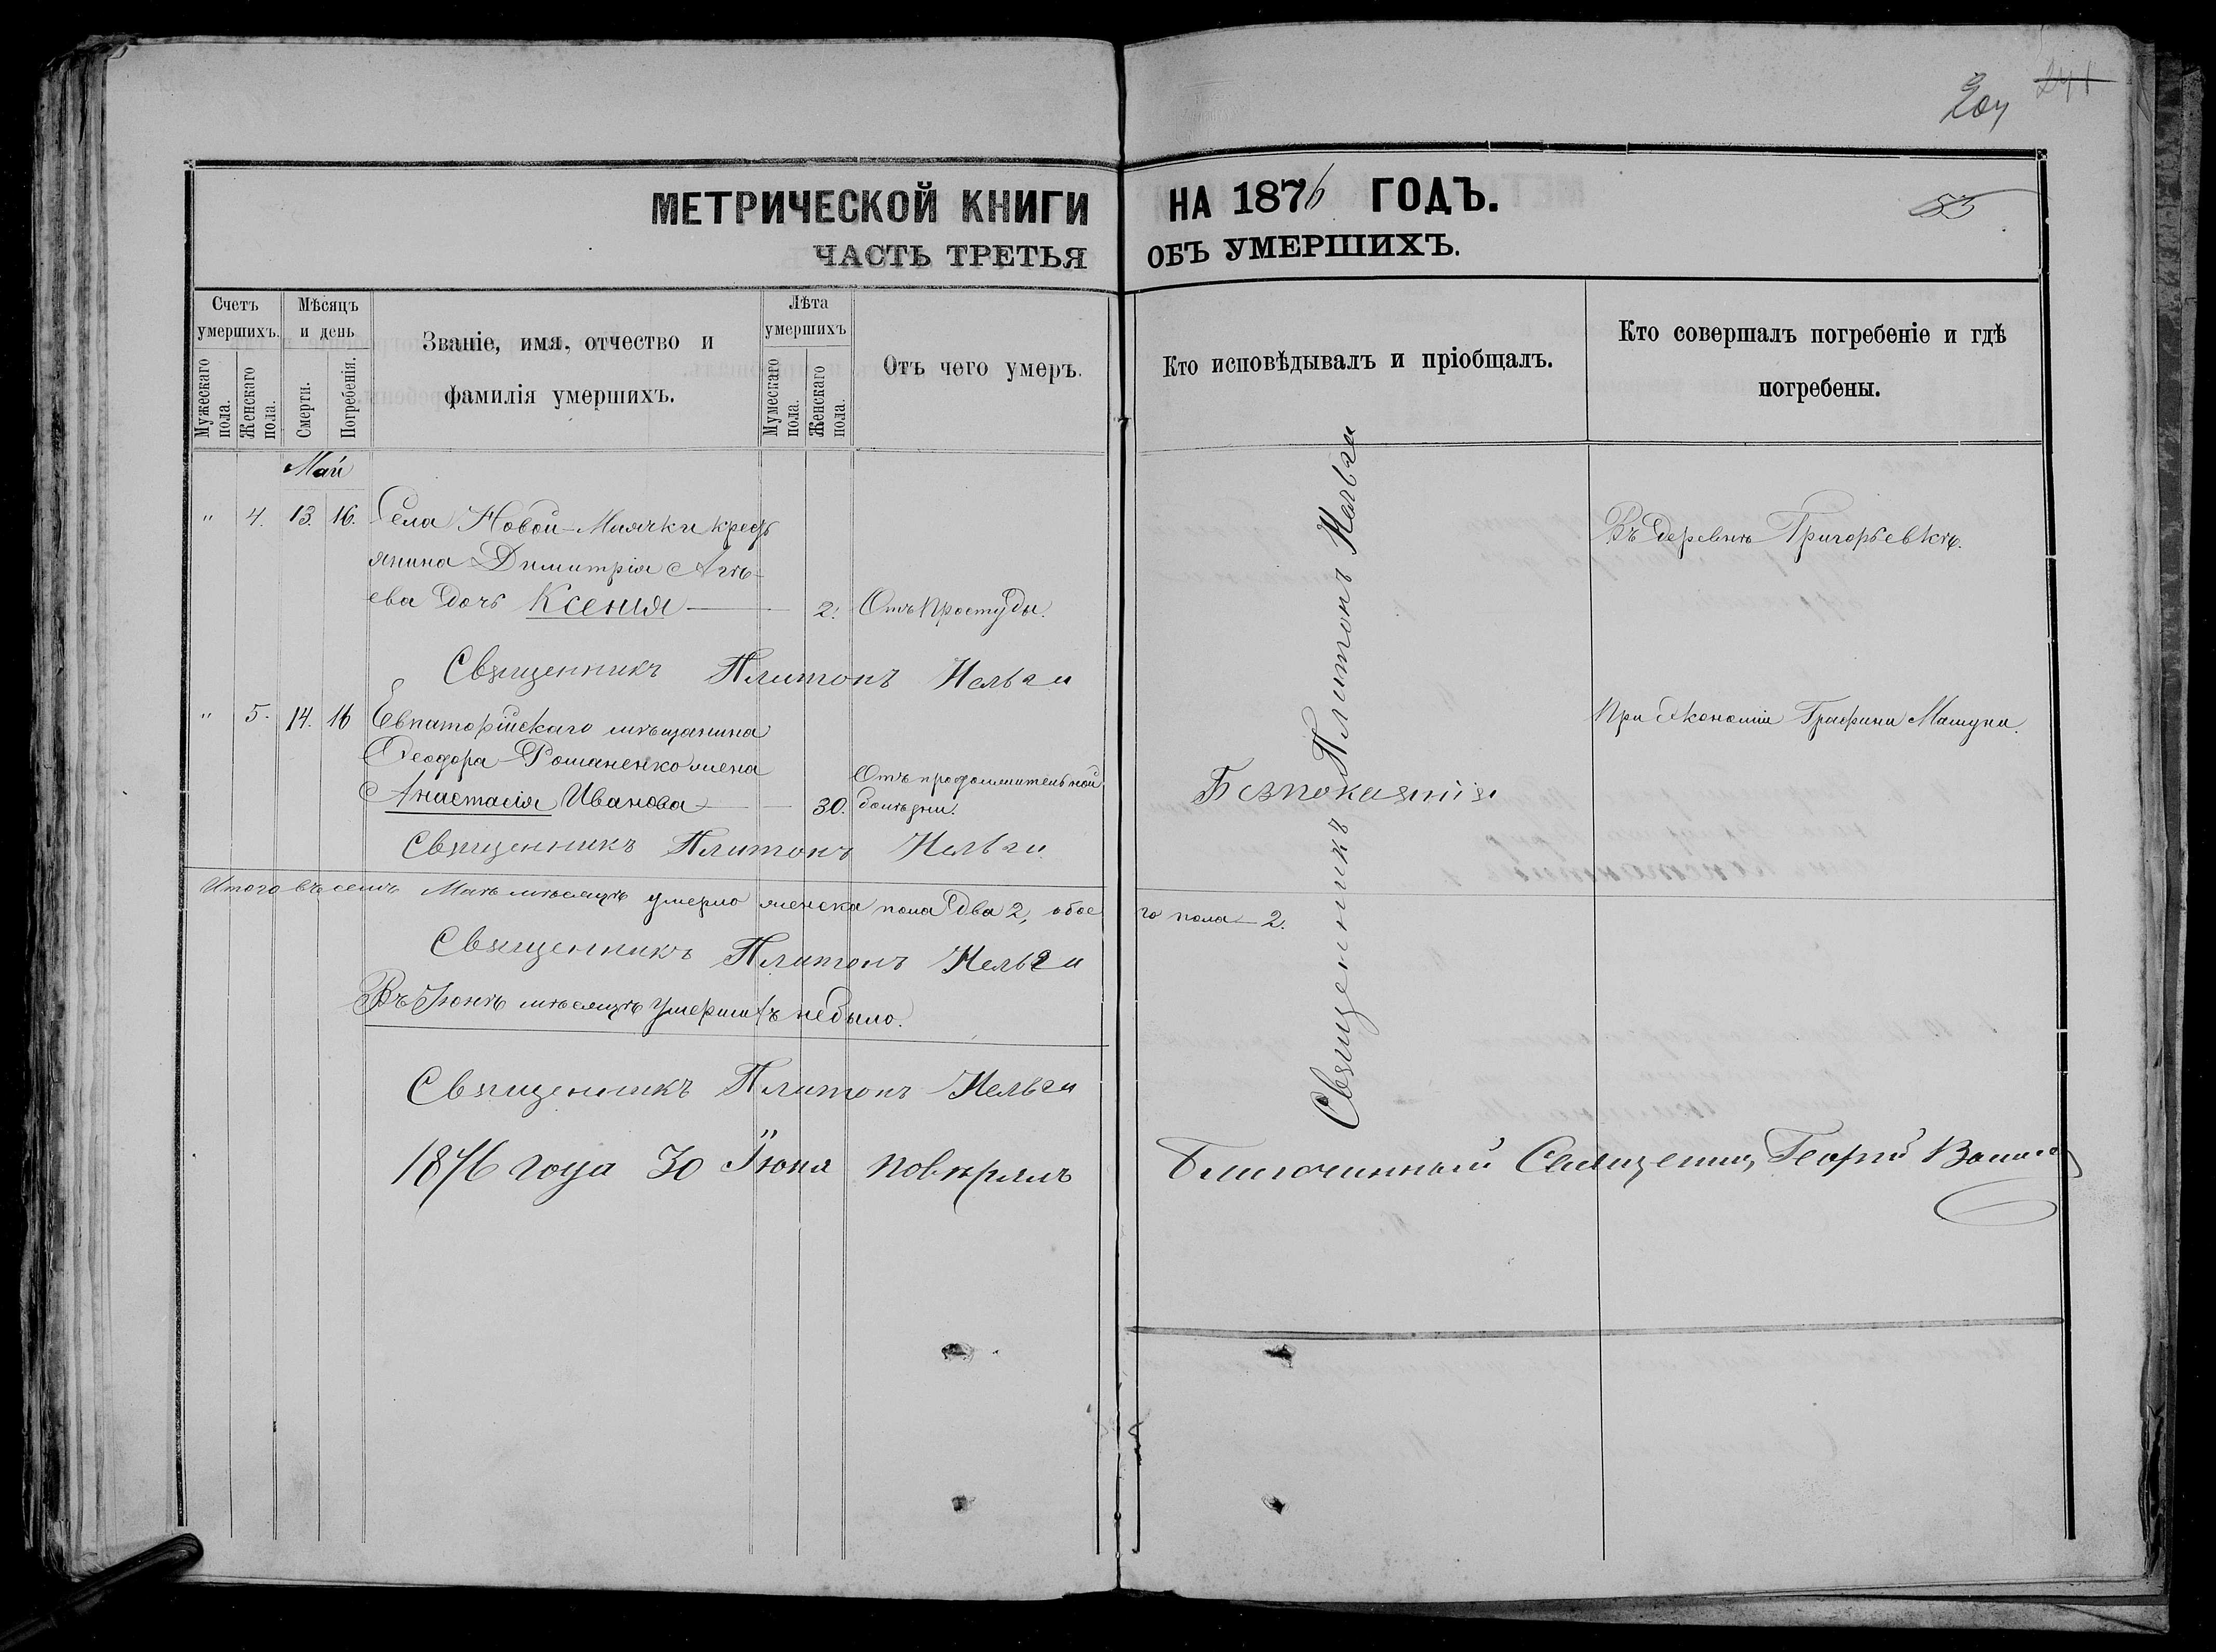 241
53
МЕТРИЧЕСКОЙ КНИГИ НА 1876 ГОДЪ.
ЧАСТЬ ТРЕТЬЯ ОБЪ УМЕРШИХЪ.
Счетъ умершихъ.
Мужескаго пола.
Женскаго пола.
Мѣсяцъ и день
Смерти.
Погребенія.
Званіе, имя, отчество и
фамилія умершихъ.
Лѣта умершихъ
Мужескаго пола.
Женскаго пола.
Отъ чего умеръ.
Кто исповѣдывалъ и пріобщалъ.
Кто совершалъ погребеніе и гдѣ
погребены.
Май
" 4. 13. 16. Села Новой-Маячки кресть
янина Димитрія
ева дочь Ксенія — 2. Отъ простуды.
Въ деревнѣ Григорьевкѣ.
Священникъ Платонъ
" 5. 14. 16 Евпаторійскаго мѣщанина
Ѳеодора Романенко жена
Анастасія Иванова — 30. Отъ продолжительной
болѣзни.
Безпокаянія
При Экономіи Графини
Священникъ Платонъ
Священникъ Платонъ
Итого въ семъ Маѣ мѣсяцѣ умерло женска пола два 2, обое го пола — 2.
Священникъ Платонъ
Въ Іюнѣ мѣсяцѣ умершихъ небыло.
Священникъ Платонъ
1876 года 30 Іюня повѣрялъ Благочинный Священникъ Георгій